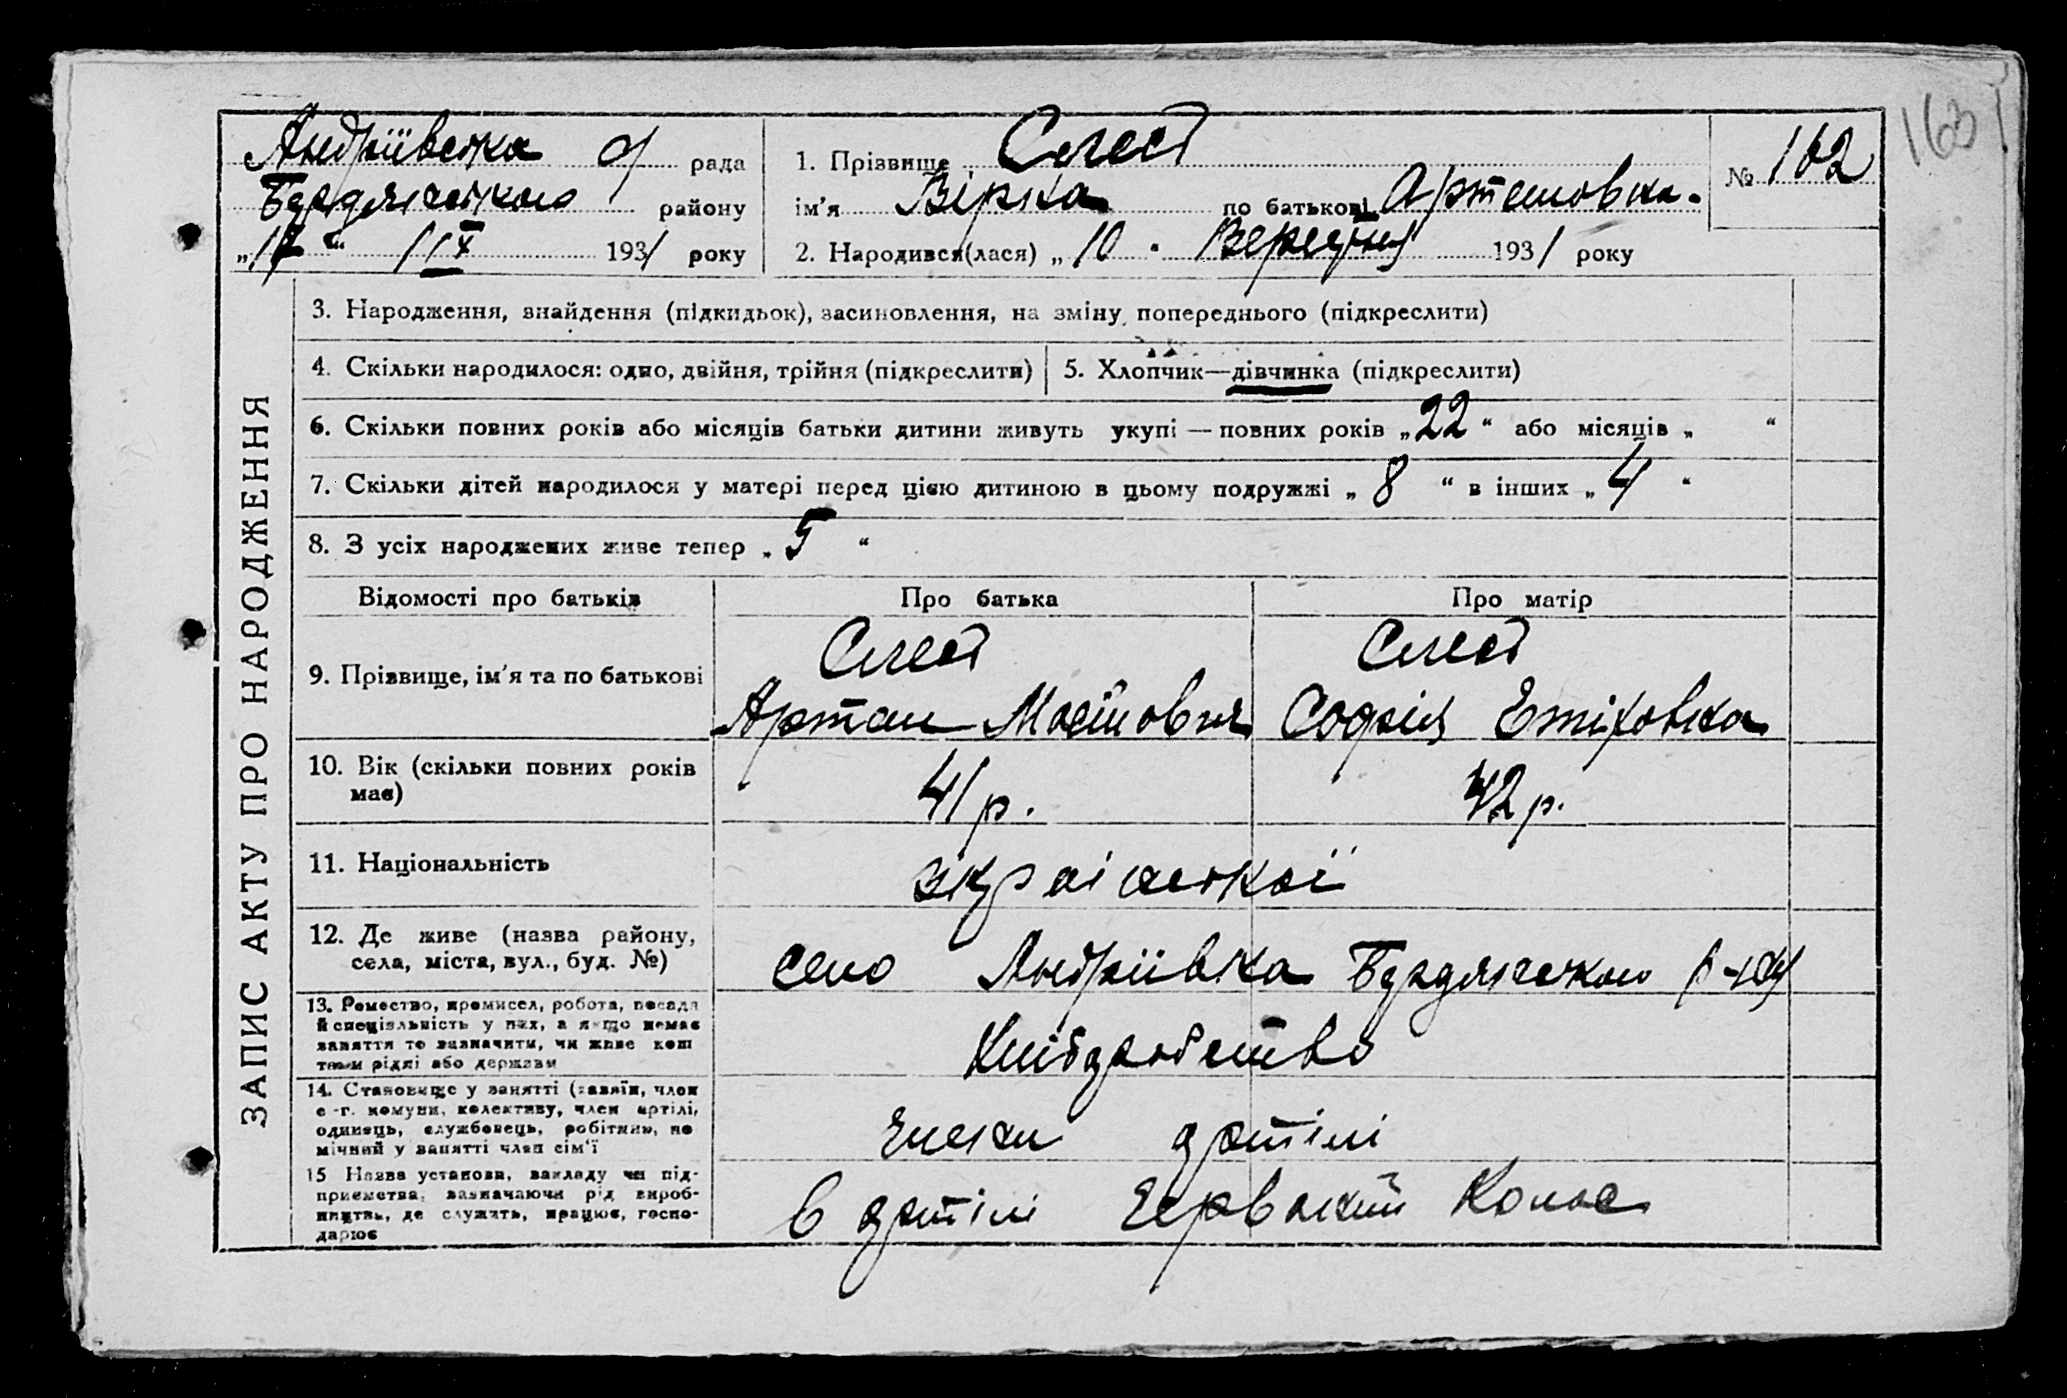 163
Андріївська с/ рада
Бердянського району
„17“ IX 1931 року
1. Прізвище Слест
ім'я Вірка по батькові Артемовна.
№ 162
2. Народився(лася) „10" Вересня 1931 року
ЗАПИС АКТУ ПРО НАРОДЖЕННЯ
3. Народження, знайдення (підкидьок), засиновлення, на зміну попереднього (підкреслити)
4. Скільки народилося: одно, двійня, трійня (підкреслити)
5. Хлопчик—дівчинка (підкреслити)
6. Скільки повних років або місяців батьки дитини живуть укупі — повних років „22“ або місяців „ “
7. Скільки дітей народилося у матері перед цією дитиною в цьому подружжі „8“ в інших „4“
8. З усіх народжених живе тепер „5“
Відомості про батьків
Про батька
Про матір
9. Прізвище, ім'я та по батькові
Слест
Артам Мосійович
Слест
Софія
10. Вік (скільки повних років
має)
41 р.
42 р.
11. Національність
української
12. Де живе (назва району,
села, міста, вул., буд. №)
село Андріївка Бердянського р-ну
13. Ремество, промисел, робота, посада
й спеціяльність у них, а якщо немає
заняття то зазначити, чи живе кош
том рідні або держави
Хліборобство
14. Становище у занятті (хазяїн, член
с.-г. комуни, колективу, член артілі,
одинець, службовець, робітник, по
мічний у занятті член сім'ї
члени артілі
15 Назва установи, закладу чи під-
приємства, зазначаючи рід вироб-
ництва, де служить, працює, госпо-
дарює
в артілі Червоний Колос